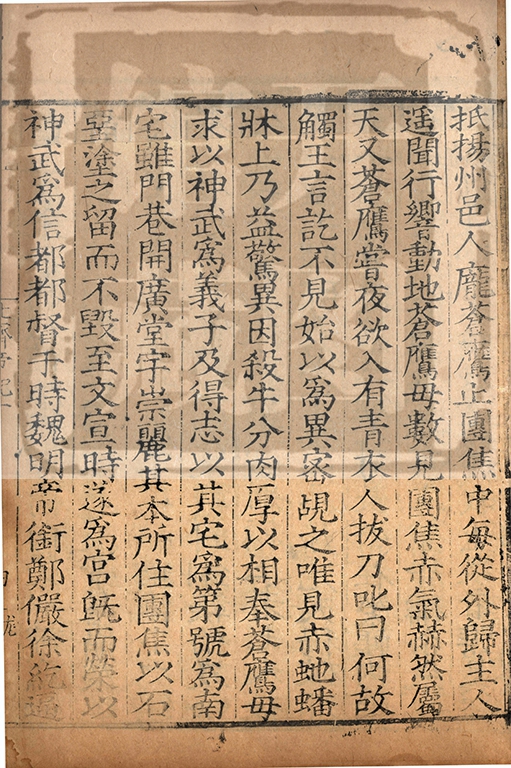 抵揚州邑人龐蒼鷹止團焦中每從外歸主人
遥聞行響動地蒼鷹母數見團焦赤氣赫然屬
天又蒼鷹嘗夜欲入有青衣人拔刀叱曰何故
觸王言訖不見始以爲異密覘之唯見赤虵蟠
牀上乃益驚異因殺牛分肉厚以相奉蒼鷹母
求以神武爲義子及得志以其宅爲第號爲南
宅雖門巷開廣堂宇崇麗其本所住團焦以石
堊塗之留而不毀至文宣時遂爲宫旣而榮以
神武爲信都都督于時魏明帝銜鄭儼徐紇逼